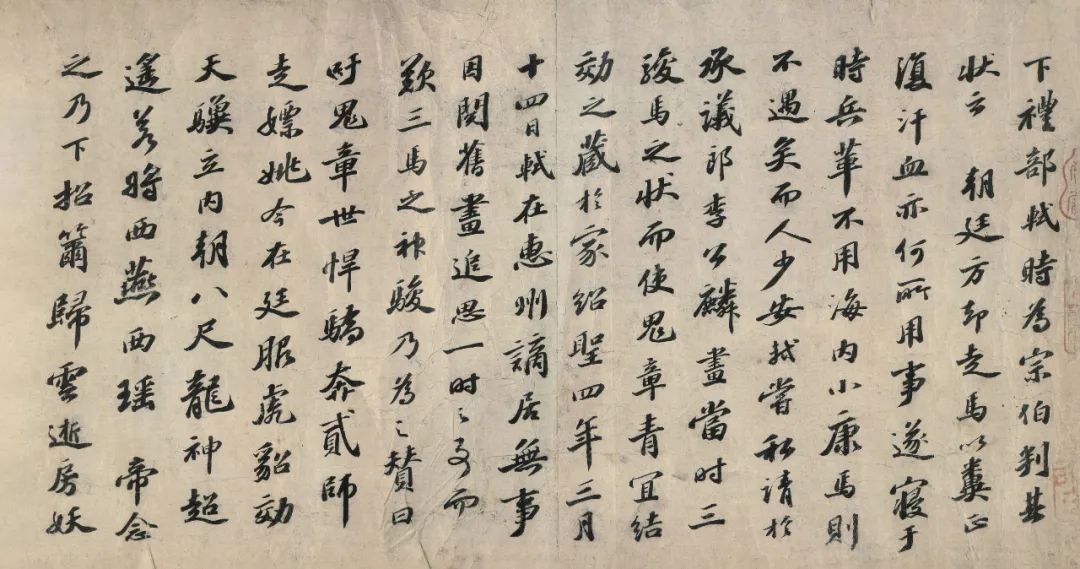 下禮部軾時為宗伯判其
狀云 朝廷方却走馬以糞正
復汗血亦何所用事遂寢于
時兵革不用海內小康馬則
不遇矣而人少安軾嘗私請於
承議郎李公麟畫當時三
駿馬之狀而使鬼章青宜結
効之藏於家紹聖四年三月
十四日軾在惠州謫居無事
因閱舊畫追思一時之事而
歎三馬之神駿乃為之贊曰
吁鬼章世悍驕奔貳師
走嫖姚今在廷服虎貂効
天驥立內朝八尺龍神超
遙若將西燕西瑤帝念
之乃下招籋歸雲逝房妖